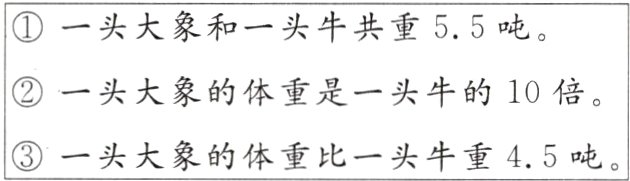 ① 一头大象和一头牛共重 5.5 吨。
② 一头大象的体重是一头牛的 10 倍。
③ 一头大象的体重比一头牛重 4.5 吨。